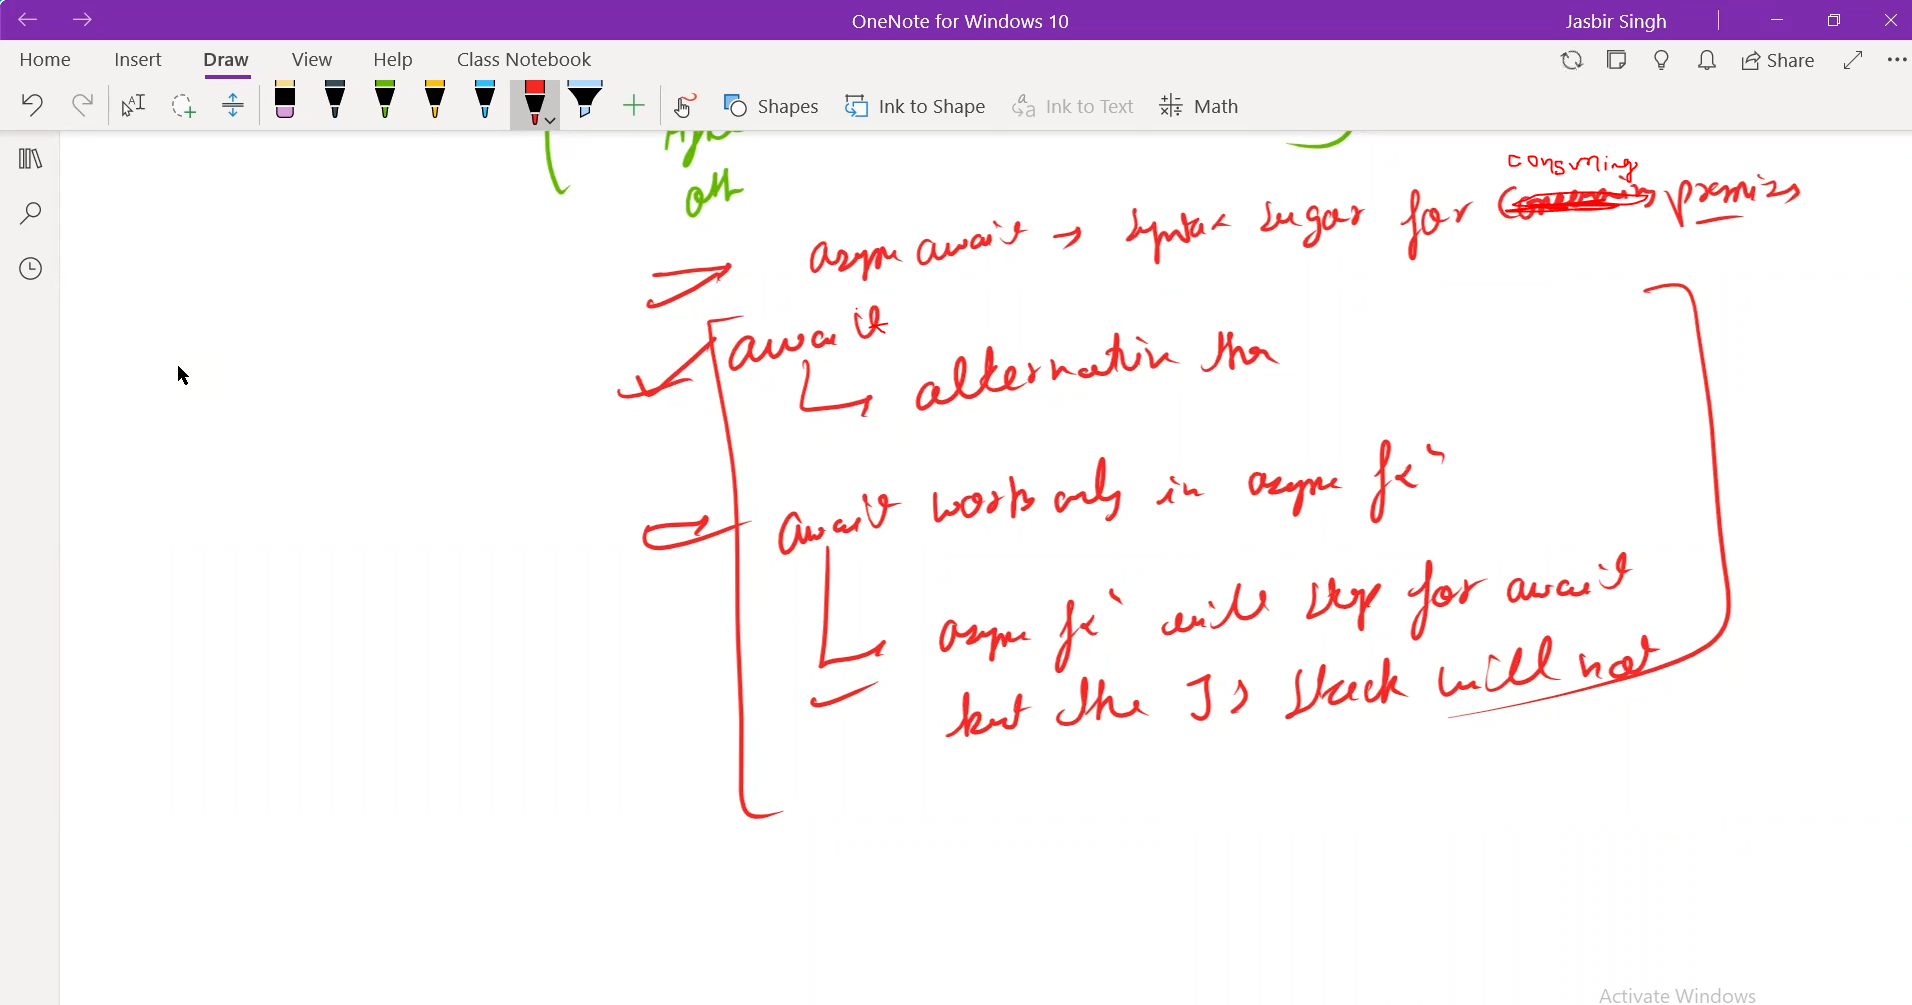 OneNote for Windows 10
Jasbir Singh
Home Insert Draw View Help Class Notebook
Share
Shapes Ink to Shape Ink to Text Math
consuming
async await → syntax sugar for promises
await
alternative then
await works only in async fxn
async fxn will stop for await
but the JS stack will not
Activate Windows